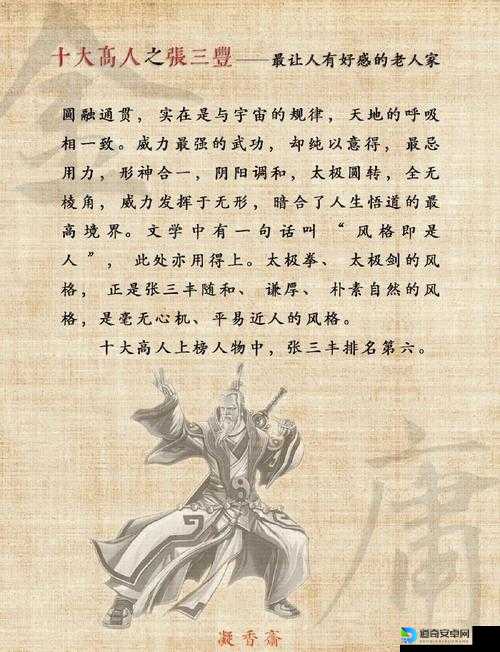 十大高人之張三豐——最让人有好感的老人家
圆融通贯，实在是与宇宙的规律，天地的呼吸
相一致。威力最强的武功，却纯以意得，最忌
用力，形神合一，阴阳调和，太极圆转，全无
棱角，威力发挥于无形，暗合了人生悟道的最
高境界。文学中有一句话叫“风格即是
人”，此处亦用得上。太极拳、太极剑的风
格，正是张三丰随和、谦厚、朴素自然的风
格，是毫无心机、平易近人的风格。
十大高人上榜人物中，张三丰排名第六。
金
庸
凝香齋
道奇安卓网